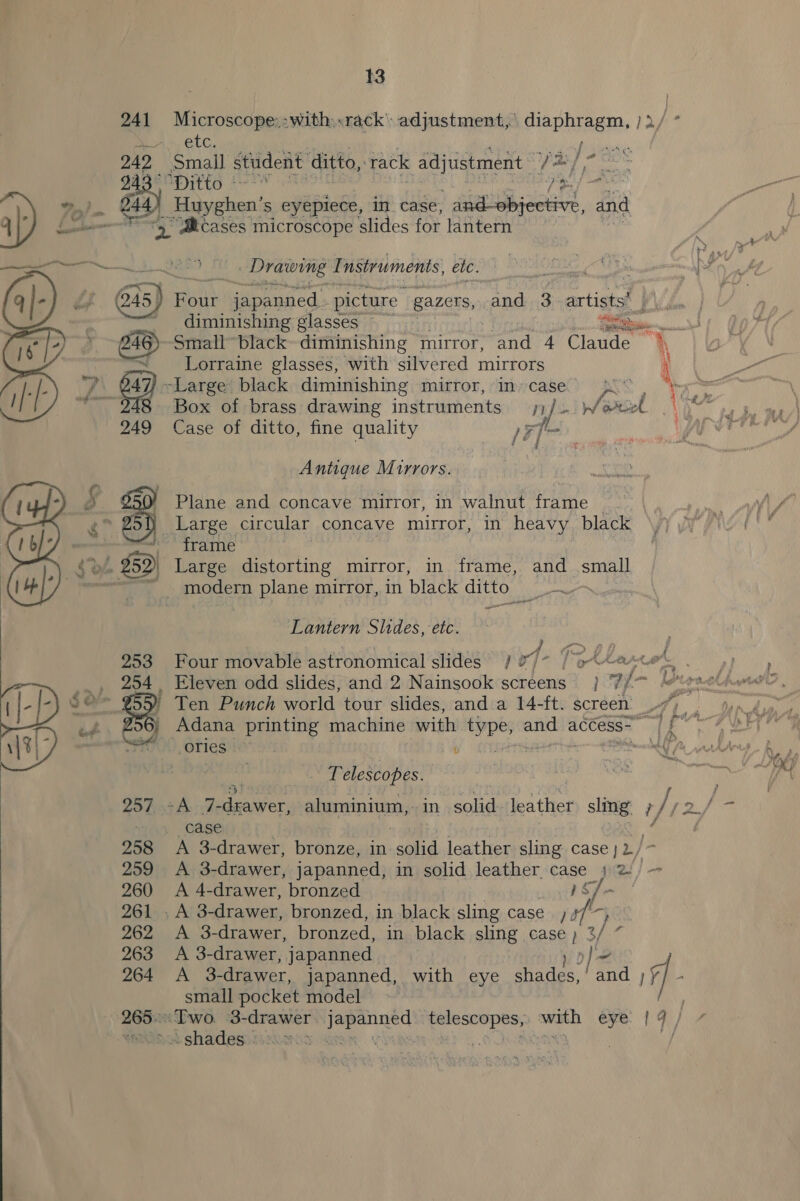 13
241 Microscope with rack adjustment, diaphragm,
etc.
242 Small student ditto, rack adjustment
243 Ditto
244 Huyghen's eyepiece, in case, and objective, and
3 cases microscope slides for lantern
Drawing Instruments, etc.
245 Four japanned picture gazers, and 3 artists'
diminishing glasses
246 Small black diminishing mirror, and 4 Claude
Lorraine glasses, with silvered mirrors
247 Large black diminishing mirror, in case
248 Box of brass drawing instruments
249 Case of ditto, fine quality
Antique Mirrors.
250 Plane and concave mirror, in walnut frame
251 Large circular concave mirror, in heavy black
frame
252 Large distorting mirror, in frame, and small
modern plane mirror, in black ditto
Lantern Slides, etc.
253 Four movable astronomical slides
254 Eleven odd slides, and 2 Nainsook screens
255 Ten Punch world tour slides, and a 14-ft. screen
256 Adana printing machine with type, and access-
ories
Telescopes.
257 A 7-drawer, aluminium, in solid leather sling
case
258 A 3-drawer, bronze, in solid leather sling case
259 A 3-drawer, japanned, in solid leather case
260 A 4-drawer, bronzed
261 A 3-drawer, bronzed, in black sling case
262 A 3-drawer, bronzed, in black sling case
263 A 3-drawer, japanned
264 A 3-drawer, japanned, with eye shades, and
small pocket model
265 Two 3-drawer japanned telescopes, with eye
shades